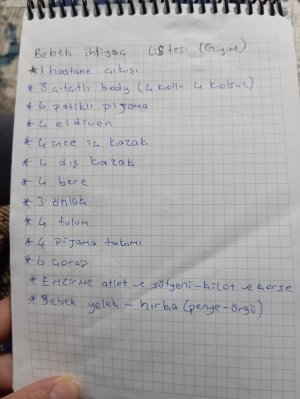 Bebek ihtiyaç Listesi (Giyim)
* 1 hastane çıkışı
* 8 çıtçıtlı body (4 kollu 4 kolsuz)
* 6 patikli pijama
* 4 eldiven
* 4 ince iç kazak
* 4 dış kazak
* 4 bere
* 3 önlük
* 4 tulum
* 4 pijama takımı
* 6 çorap
* Emzirme atlet ve sütyeni - kilot ve korse
* Bebek yelek - hırka (penye-örgü)